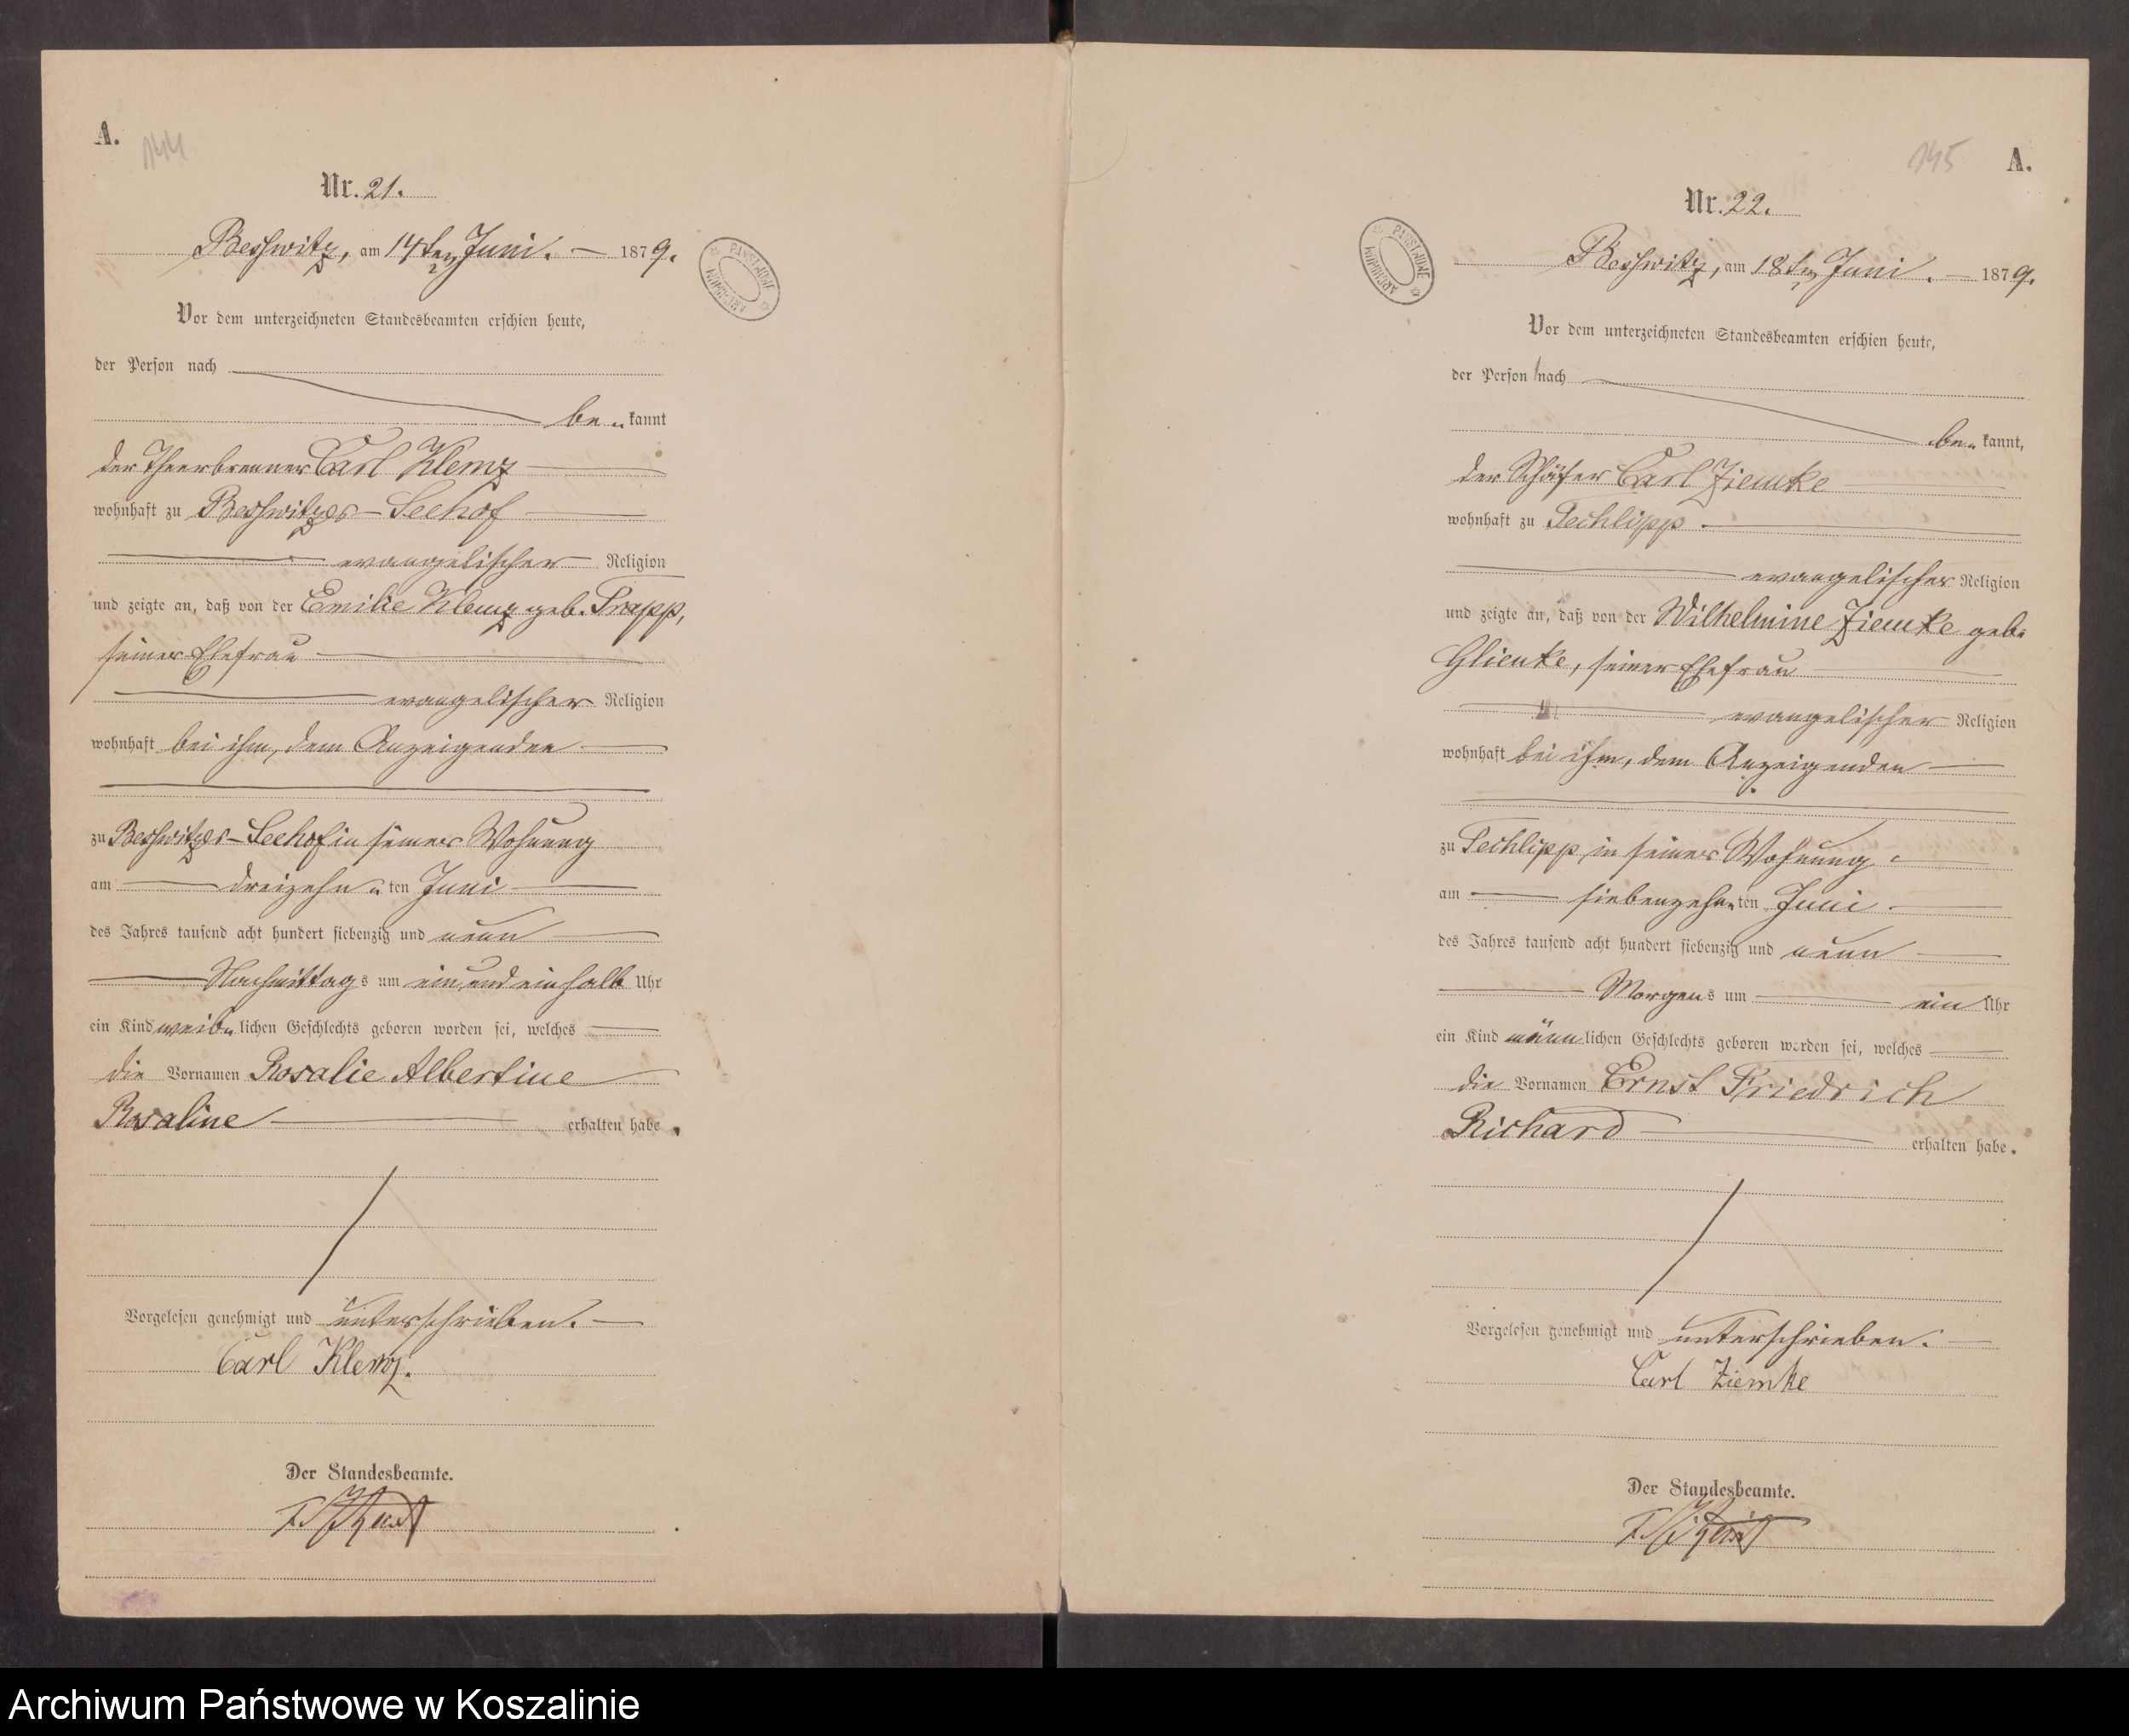 A.
144
Nr. 21.
Beßwitz, am 14ten Juni. 1879.
PAŃSTWOWE
ARCHIWUM
Vor dem unterzeichneten Standesbeamten erschien heute,
der Person nach
be kannt
der Theerbrenner Carl Klemz
wohnhaft zu Beßwitzer-Seehof
evangelischer Religion
und zeigte an, daß von der Emilie Klemz geb. Trapp,
seiner Ehefrau
evangelischer Religion
wohnhaft bei ihm, dem Anzeigenden
zu Beßwitzer-Seehof in seiner Wohnung
am dreizehn ten Juni
des Jahres tausend acht hundert siebenzig und neun
Nachmittags um ein und ein halb Uhr
ein Kind weib lichen Geschlechts geboren worden sei, welches
die Vornamen Rosalie Albertine
Rosaline erhalten habe.
Vorgelesen genehmigt und unterschrieben.
Carl Klemz.
Der Standesbeamte.
145
A.
Nr. 22.
Beßwitz, am 18ten Juni. 1879.
PAŃSTWOWE
ARCHIWUM
Vor dem unterzeichneten Standesbeamten erschien heute,
der Person nach
be kannt,
der Schäfer Carl Ziemke
wohnhaft zu Techlipp.
evangelischer Religion
und zeigte an, daß von der Wilhelmine Ziemke geb.
Glienke, seiner Ehefrau
evangelischer Religion
wohnhaft bei ihm, dem Anzeigenden
zu Techlipp in seiner Wohnung
am siebenzehn ten Juni
des Jahres tausend acht hundert siebenzig und neun
Morgens um ein Uhr
ein Kind männ lichen Geschlechts geboren worden sei, welches
die Vornamen Ernst Friedrich
Richard erhalten habe.
Vorgelesen genehmigt und unterschrieben.
Carl Ziemke
Der Standesbeamte.
Archiwum Państwowe w Koszalinie